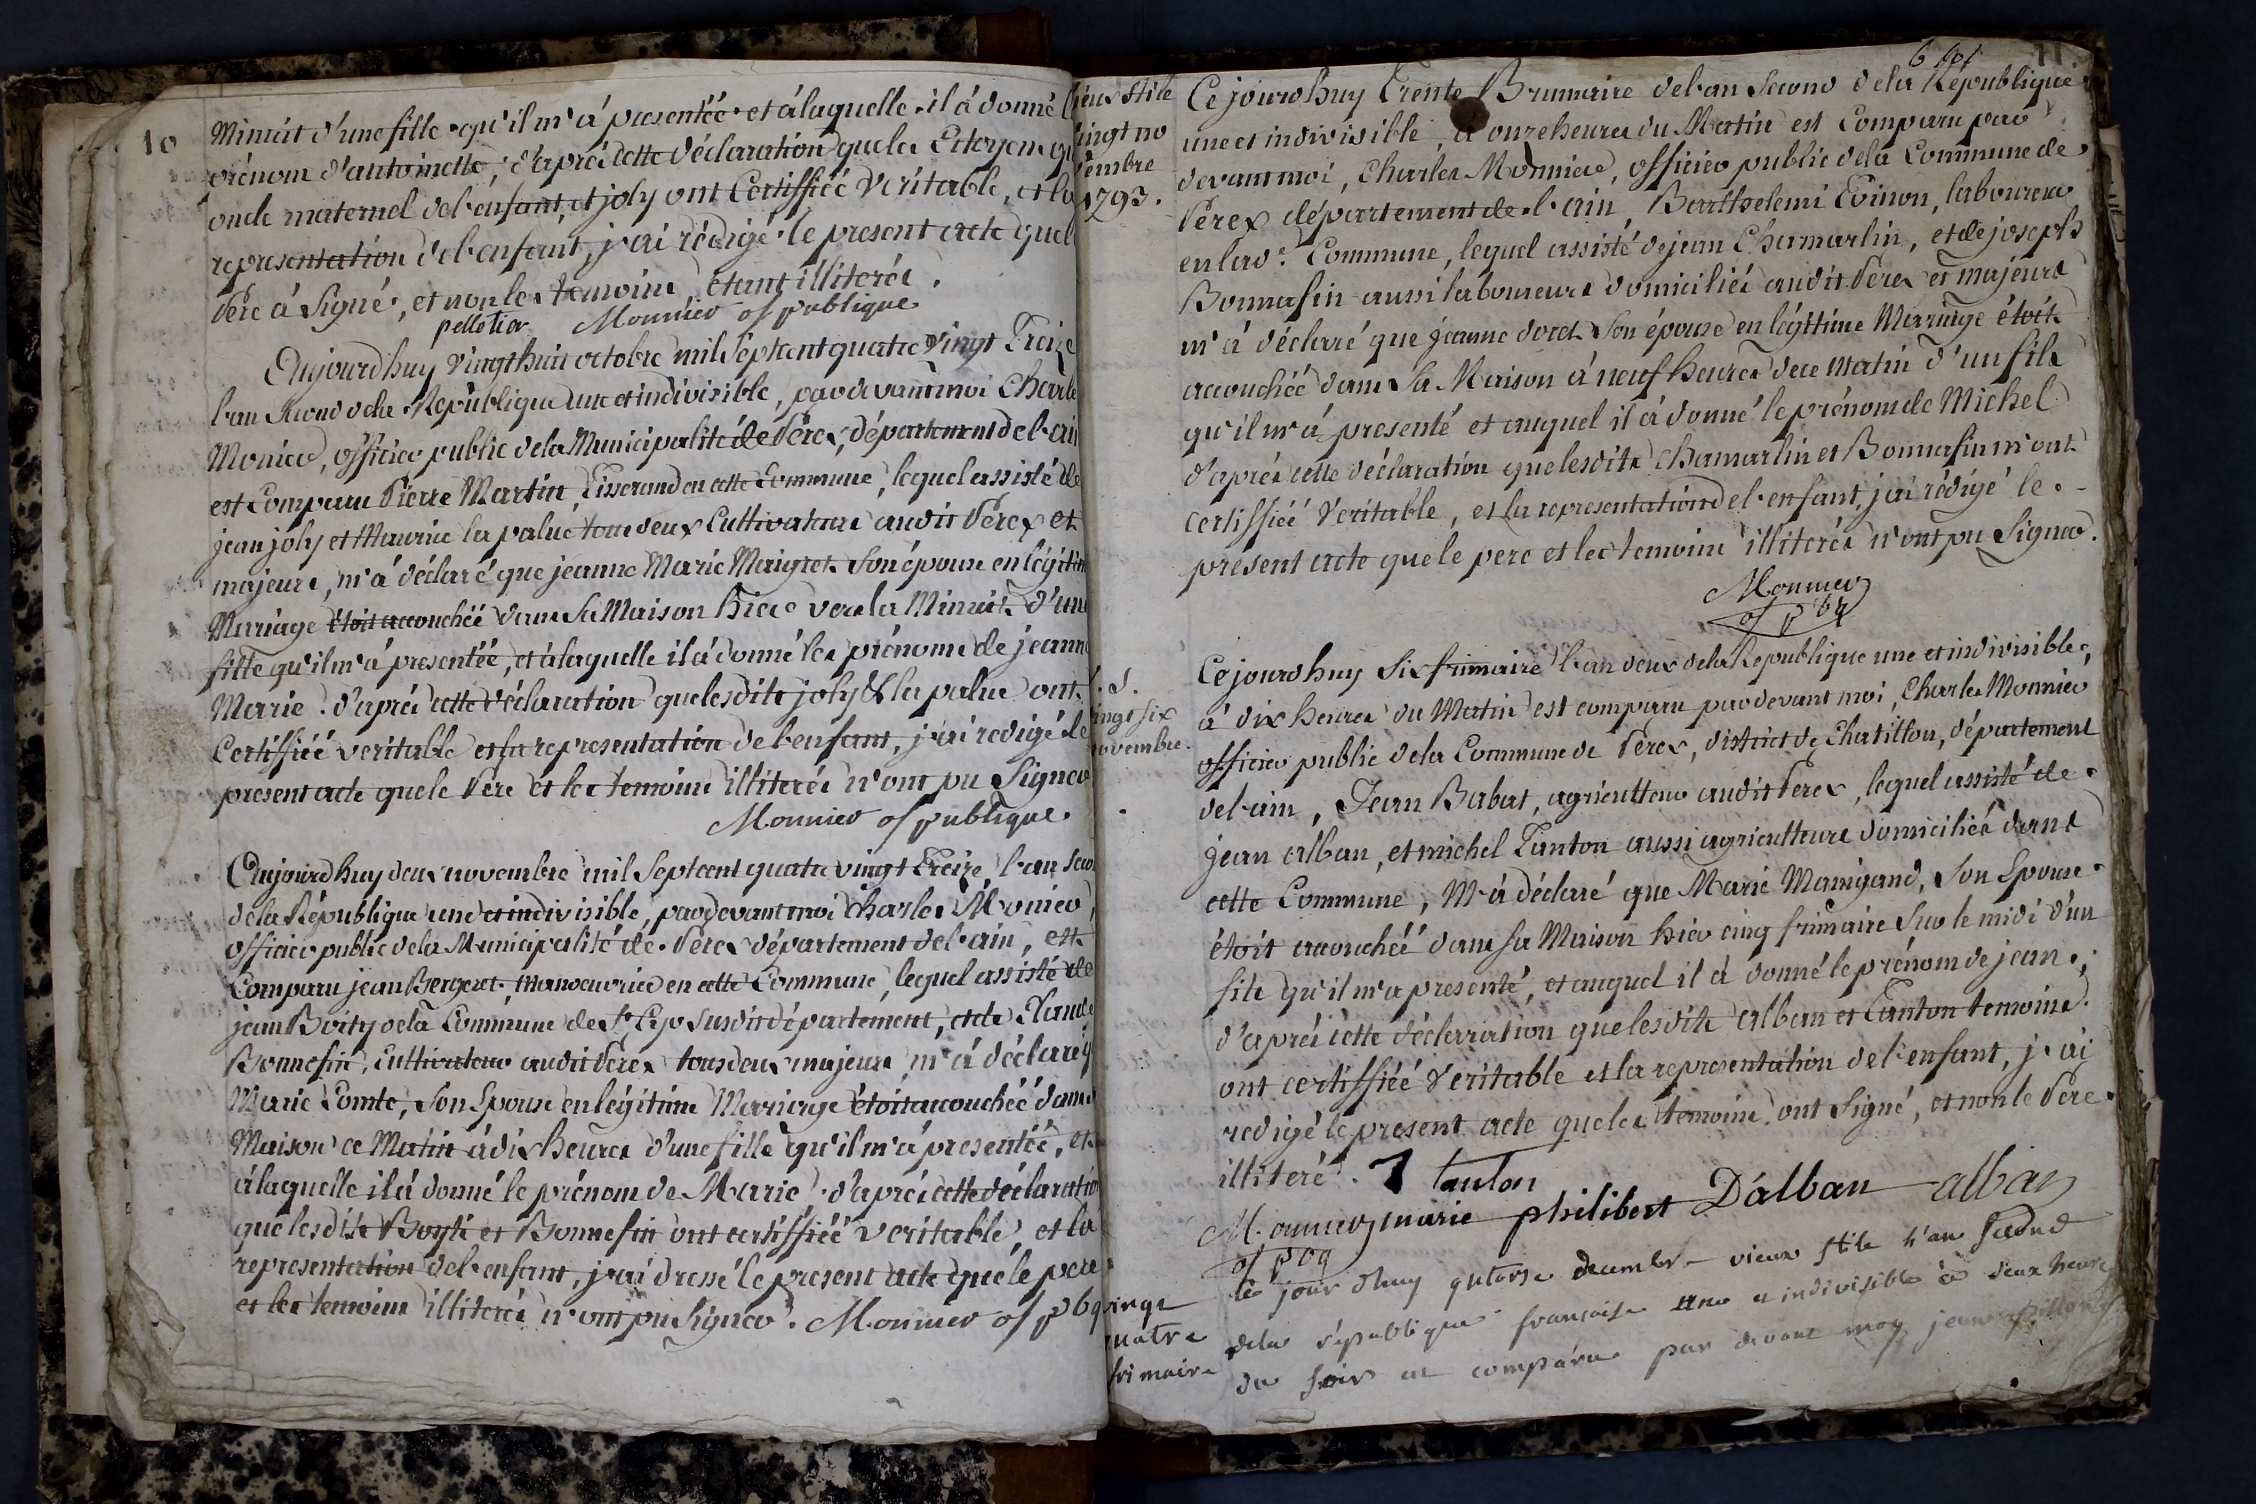 10
Minuit d'une fille qu'il m'à presentée et à laquelle il à donné l
prénom d'antoinette, d'aprés cette déclaration que les Citoyens
oncle maternel de l'enfant, et joly ont Certiffiéé Veritable, et la
representation de l'enfant, j'ai rédigé le present acte que le
Pére à Signé, et non les temoins, étant illiterés.
pelletier Monnier of publique
Aujourd'huy vingt huit octobre mil Sept cent quatre vingt Treize
l'an Second de la République une et indivisible, par devant moi Charles
Monier, officier public de la Municipalité de Pérex, département de l'ain
est Comparu Pierre Martin, Tisserand en cette Commune, lequel assisté de
jean joly et Maurice la palue tous deux Cultivateurs audit Pérex et
majeurs, m'à déclaré que jeanne Marie Maigret Son épouse en légitim
Mariage étoit accouchéé dans Sa Maison hier vers la Minuit d'une
fille qu'il m'à presentéé, et à laquelle il à donné les prénoms de jeanne
Marie. d'aprés cette déclaration que lesdits joly & la palue ont
Certiffiéé veritable et la representation de l'enfant, j'ai redigé le
present acte que le Pére et les temoins illiterés n'ont pu Signer
Monnier of publique.
Aujourd'huy deux novembre mil Sept cent quatre vingt Treize, l'an Seco
de la République une et indivisible, par devant moi Charles Monier,
officier public de la Municipalité de Pérex département de l'ain, est
Comparu jean Bergeret, manoeuvrier en cette Commune, lequel assisté de
jean Boity de la Commune de St Cyr susdit département, et de Claude
Bonnefin, Cultivateur audit Pérex tous deux majeurs m'à déclaré q
Marie Comte, Son Epouse en légitime Marriage étoit accouchéé dans
Maison ce Matin à dix heures d'une fille qu'il m'à presentéé, et
à laquelle il à donné le prénom de Marie. d'aprés cette déclaratio
que lesdits Boyti et Bonnefin ont certiffiéé veritable, et la
representation de l'enfant, j'ai dressé le present acte que le pere
et les temoins illiterés n'ont pu Signer. Monnier of pbq
11.
vieux stile
vingt no
vembre
1793.
Ce jourd'huy Trente Brumaire de l'an Second de la République
une et indivisible, à onze heures du Matin est Comparu par
devant moi, Charles Monnier, officier public de la Commune de
Pérex département de l'ain, Barthelemi Évinon, laboureur
en lad.e Commune, lequel assisté de jean Chamarlin, et de joseph
Bonnafin aussi laboureurs domiciliés audit Pérex et majeurs
m'à déclaré que jeanne doret Son épouse en légitime Marriage étoit
accouchéé dans Sa Maison à neuf heures de ce Matin d'un fils
qu'il m'à presenté et auquel il à donné le prénom de Michel
d'aprés cette déclaration que lesdits Chamarlin et Bonnafin m'ont
certiffiéé Veritable, et la representation de l'enfant, j'ai rédigé le
present acte que le pere et les temoins illiterés n'ont pu Signer.
Monnier
of pbq
v. s.
vingt six
novembre.
Ce jourd'huy Six frimaire l'an deux de la République une et indivisible,
à dix heures du Matin est comparu par devant moi, Charles Monnier
officier public de la Commune de Pérex, district de Chatillon, département
de l'ain, Jean Babat, agriculteur audit Pérex, lequel assisté de
jean alban, et michel Tanton aussi agriculteurs domiciliés dans
cette Commune, M'à déclaré que Marie Mamigand, Son Epouse
étoit accouchéé dans Sa Maison hier cinq frimaire Sur le midi d'un
fils qu'il m'a presenté, et auquel il à donné le prénom de jean.;
d'aprés cette déclarration que lesdits alban et Tanton temoins
ont certiffiéé Veritable et la representation de l'enfant, j'ai
redigé le present acte que les temoins ont Signé, et non le Pére
illiteré. tanton
Monnier marie philibert D'alban alban
of pbq
vingt
quatre
frimaire
le jour dhuy quatorse decembre vieux stile l'an Second
de la république francaise une et indivisible à deux heures
du soir est comparu par devant moy jean